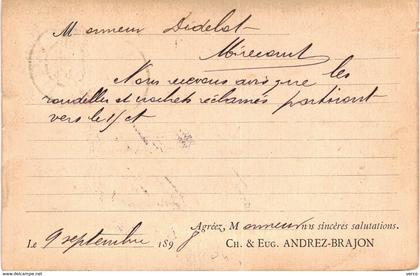 Monsieur Didelot
Mirecourt
Nous recevons avis que les
rondelles et crochets réclamés partiront
vers le 15 ct
Agréez, Monsieur nos sincères salutations.
Le 9 septembre 1898 CH. & EUG. ANDREZ-BRAJON